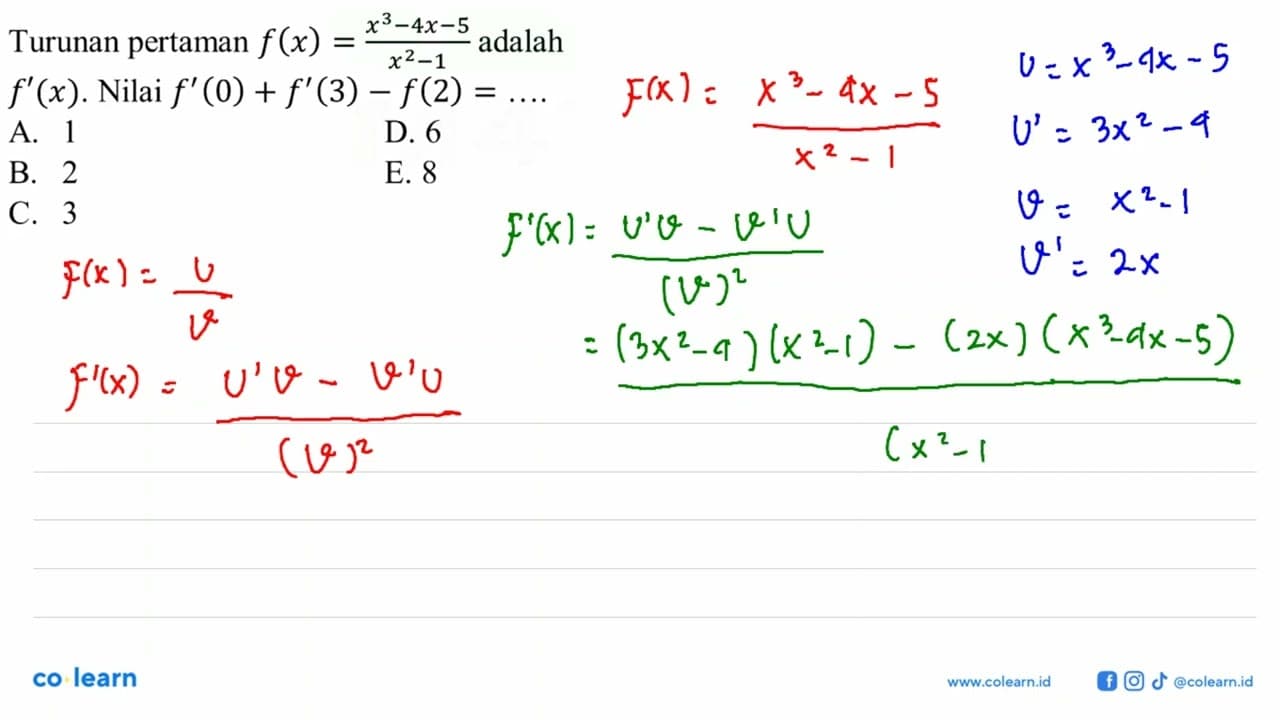 Turunan pertaman f(x) = \frac{x^3-4x-5}{x^2-1} adalah
f'(x). Nilai f'(0) + f'(3) − f(2) = ....
A. 1
B. 2
C. 3
D. 6
E. 8
F(x) = \frac{U}{V}
F'(x) = \frac{U'V - V'U}{(V)^2}
F(x) = \frac{x^3 - 4x - 5}{x^2 - 1}
U = x^3 - 4x - 5
U' = 3x^2 - 4
V = x^2 - 1
V' = 2x
F'(x) = \frac{U'V - V'U}{(V)^2}
= \frac{(3x^2-4)(x^2-1) - (2x)(x^3-4x-5)}{(x^2-1}
co learn
www.colearn.id
@colearn.id